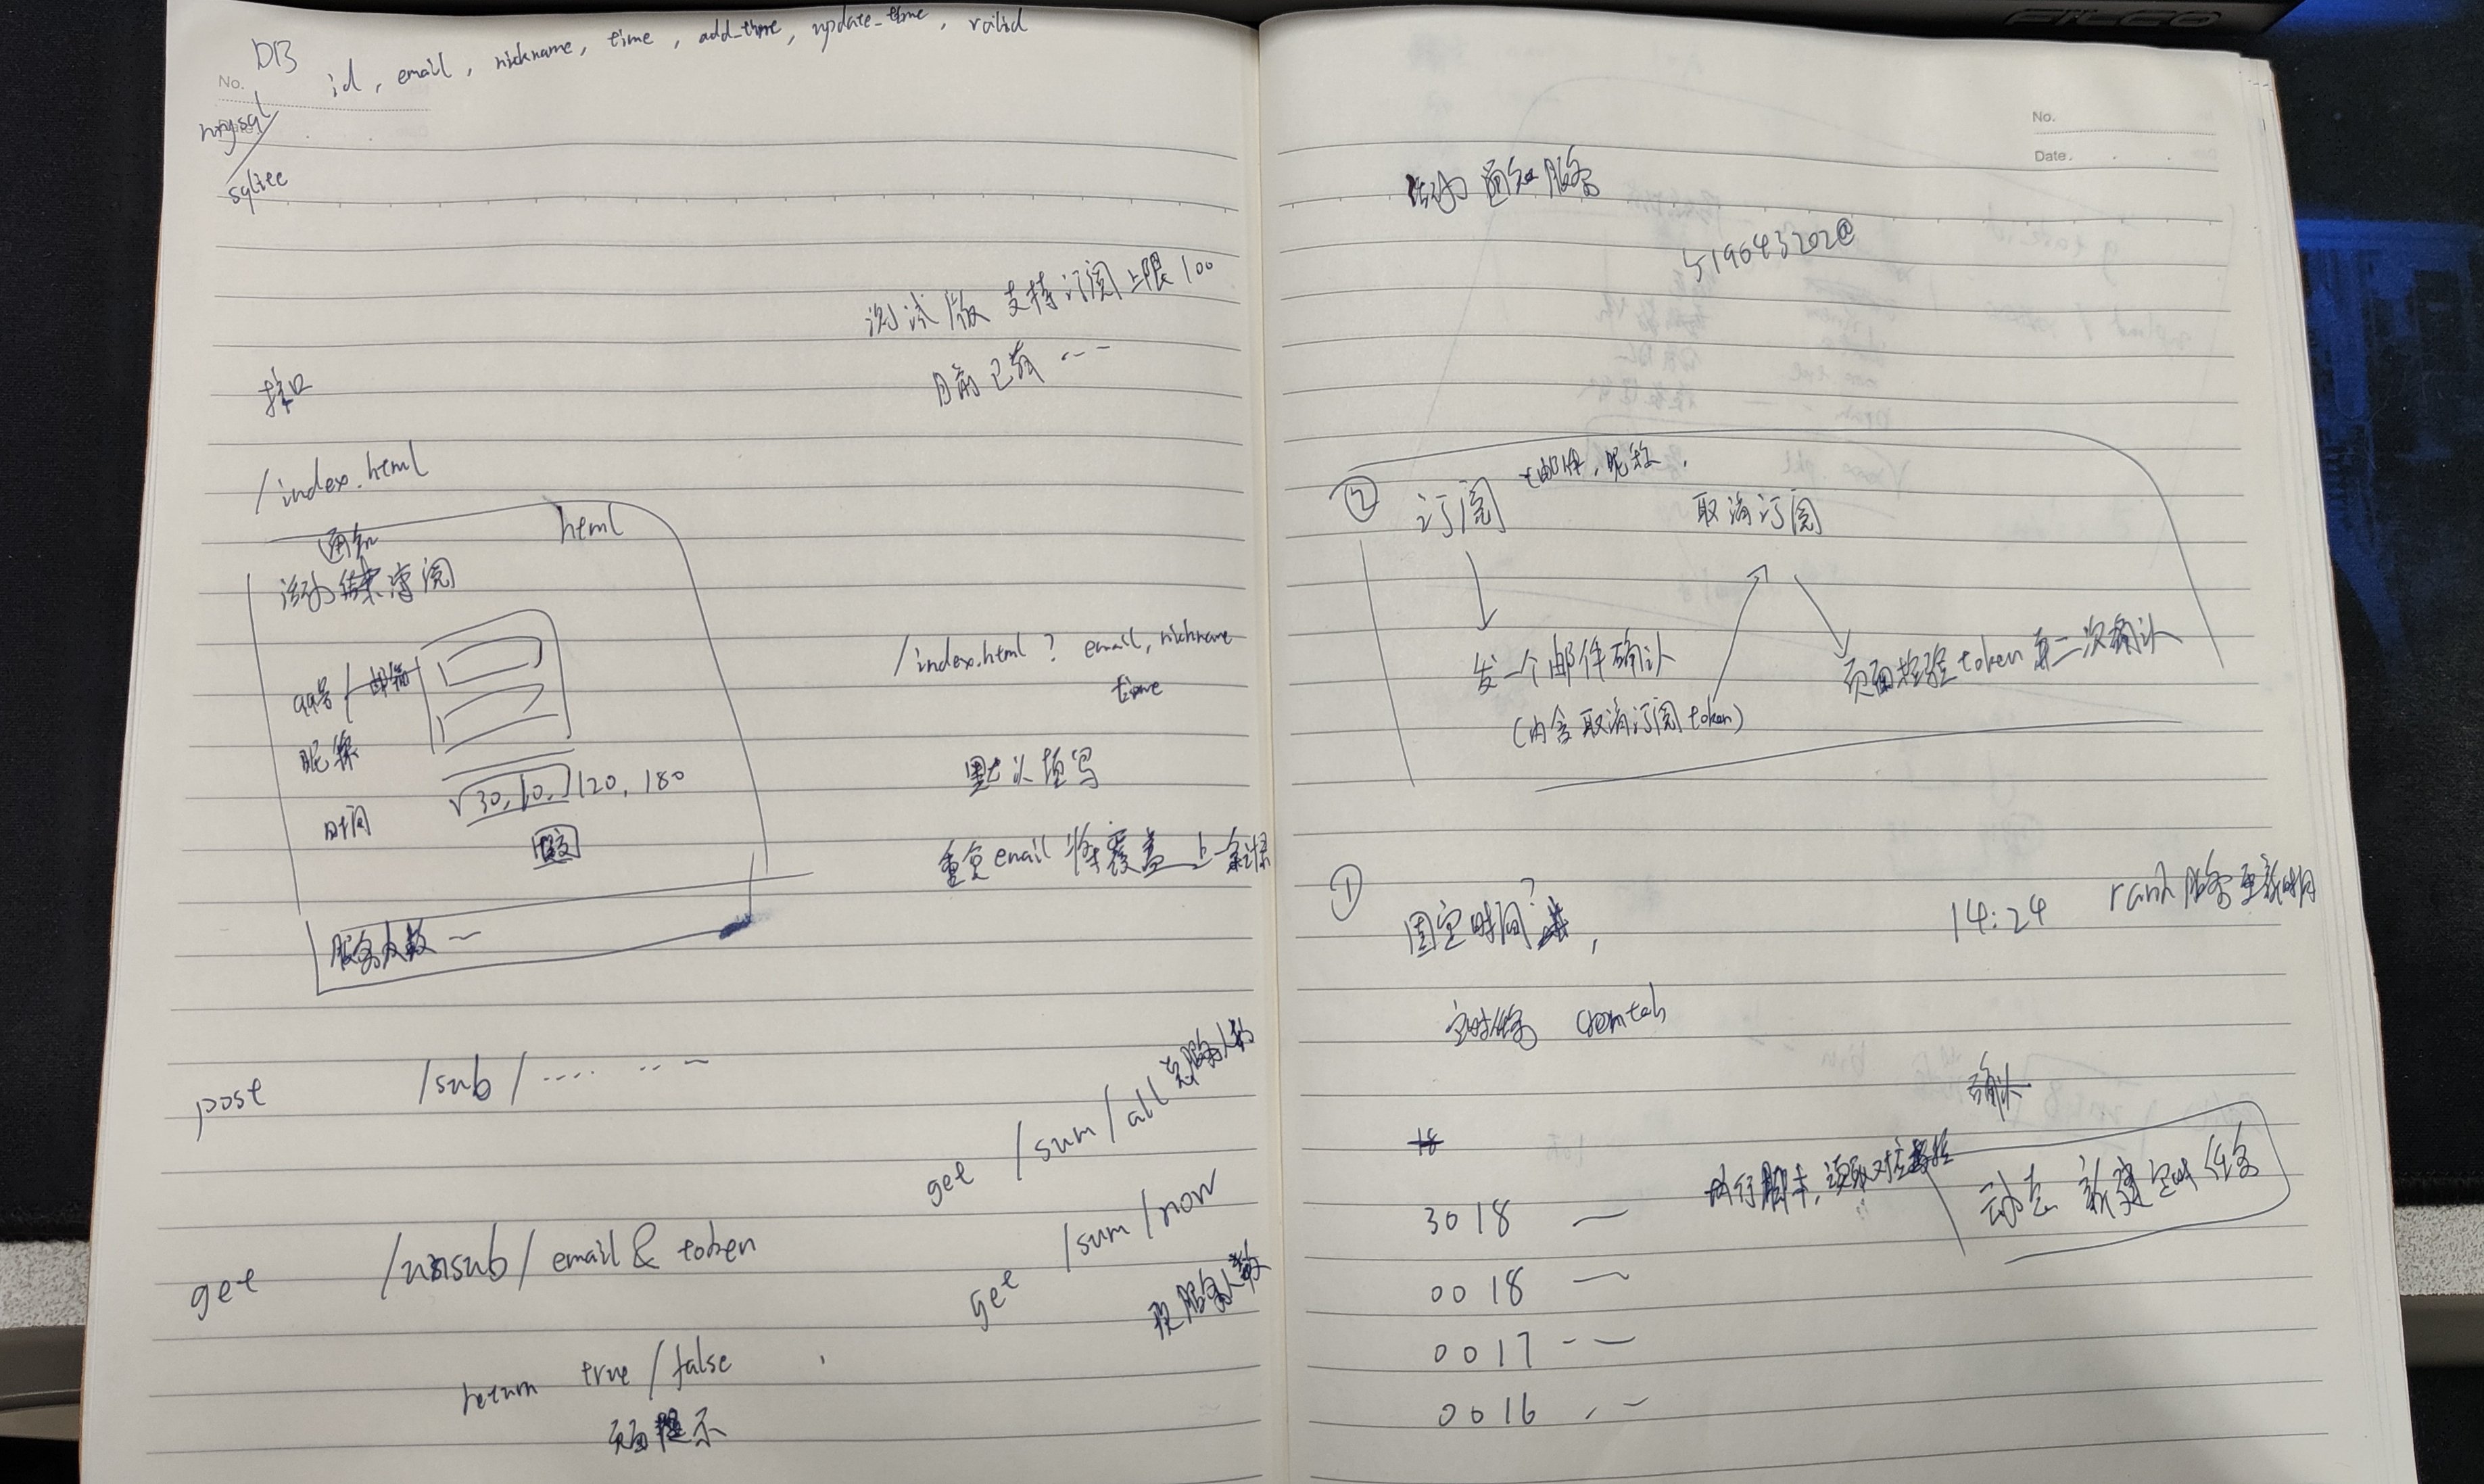 DB id, email, nickname, time, add_time, update_time, valid
No.
mysql
sqlite
测试版 支持订阅上限100
目前已有 ---
接口
/index.html
html
通知
活动结束订阅
qq号/邮箱
昵称
时间
30, 60, 120, 180
提交
服务人数
/index.html ? email, nickname
time
默认填写
重复email 将覆盖上一条记录
post /sub/ ····
get /sum/all 总服务人数
get /sum/now
现服务人数
get /unsub/email & token
return true/false
页面提示
FILCO
No.
Date.
活动 通知服务
519643202@
② 订阅 邮件, 昵称,
取消订阅
发一个邮件确认
(内含取消订阅token)
页面校验token 再二次确认
① 固定时间?,
14:24 rank服务更新时间
定时任务 crontab
确认
18
3018 — 执行脚本, 读取对应
动态 新建定时任务
0018 —
0017 --
0016 --